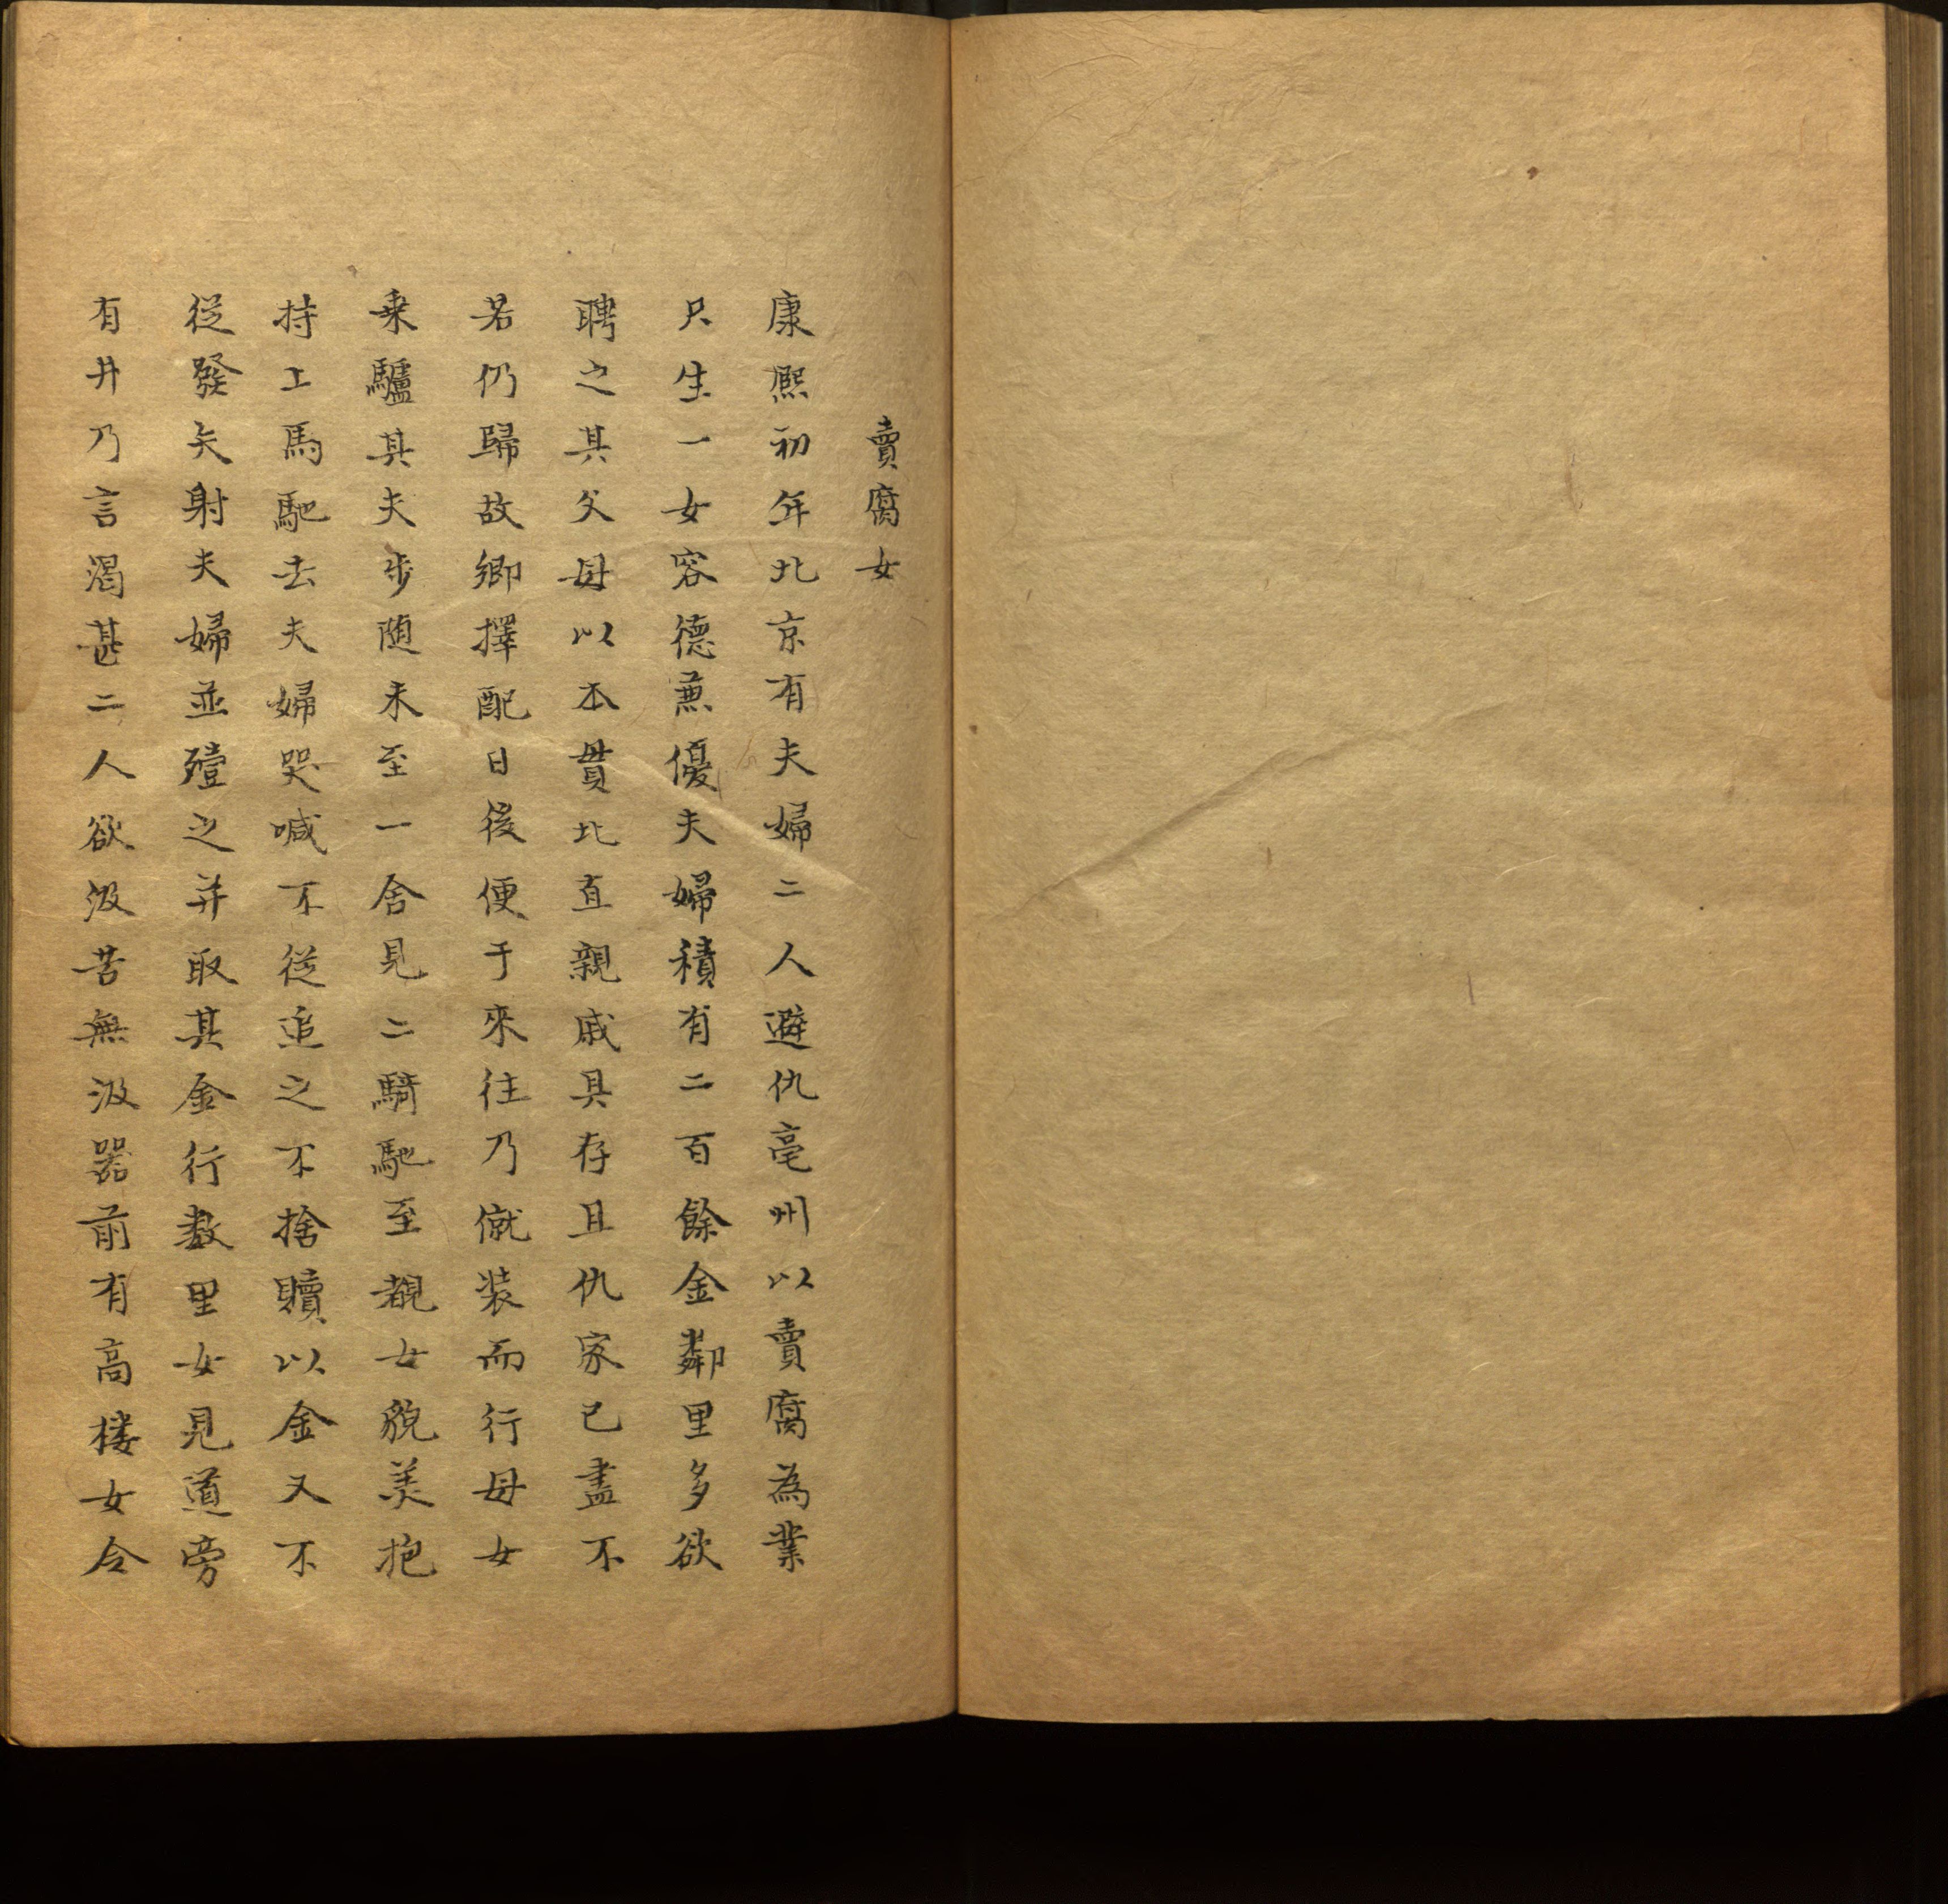 賣腐女
康熙初年北京有夫婦二人避仇亳州以賣腐為業
只生一女容德兼優夫婦積有二百餘金鄰里多欲
聘之其父母以本貫北直親戚具存且仇家已盡不
若仍歸故鄉擇配日後便于來往乃僦装而行母女
乗驢其夫步随未至一舍見二騎馳至覩女貌美抱
持上馬馳去夫婦哭喊不從追之不捨贖以金又不
從發矢射夫婦並殪之并取其金行数里女見道旁
有井乃言渴甚二人欲汲苦無汲器前有高楼女令